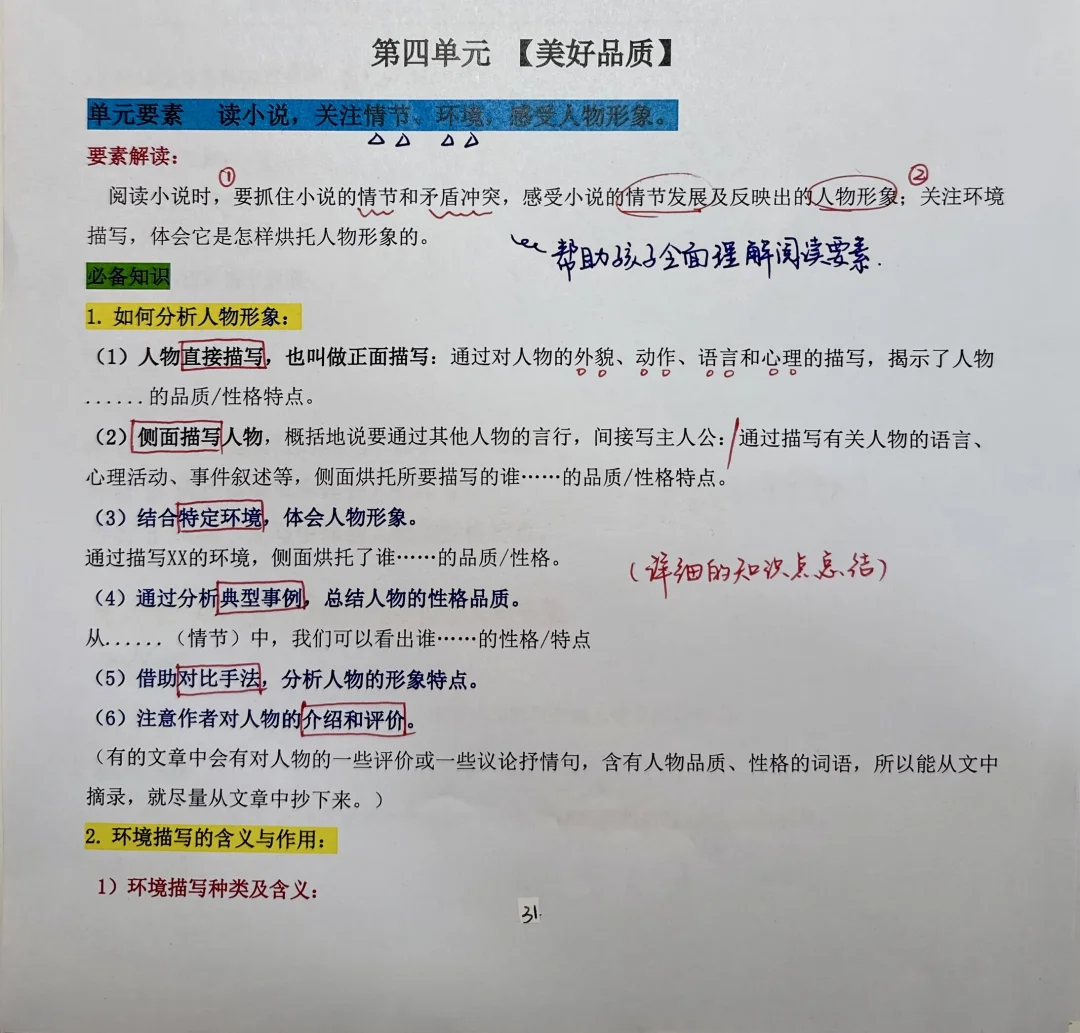 第四单元 【美好品质】
单元要素 读小说，关注情节、环境，感受人物形象。
要素解读：
① ②
阅读小说时，要抓住小说的情节和矛盾冲突，感受小说的情节发展及反映出的人物形象；关注环境
描写，体会它是怎样烘托人物形象的。
帮助孩子全面理解阅读要素.
必备知识
1. 如何分析人物形象：
（1）人物直接描写，也叫做正面描写：通过对人物的外貌、动作、语言和心理的描写，揭示了人物
......的品质/性格特点。
（2）侧面描写人物，概括地说要通过其他人物的言行，间接写主人公：通过描写有关人物的语言、
心理活动、事件叙述等，侧面烘托所要描写的谁……的品质/性格特点。
（3）结合特定环境，体会人物形象。
通过描写XX的环境，侧面烘托了谁……的品质/性格。
（详细的知识点总结）
（4）通过分析典型事例，总结人物的性格品质。
从......（情节）中，我们可以看出谁……的性格/特点
（5）借助对比手法，分析人物的形象特点。
（6）注意作者对人物的介绍和评价。
（有的文章中会有对人物的一些评价或一些议论抒情句，含有人物品质、性格的词语，所以能从文中
摘录，就尽量从文章中抄下来。）
2. 环境描写的含义与作用：
1）环境描写种类及含义：
31.